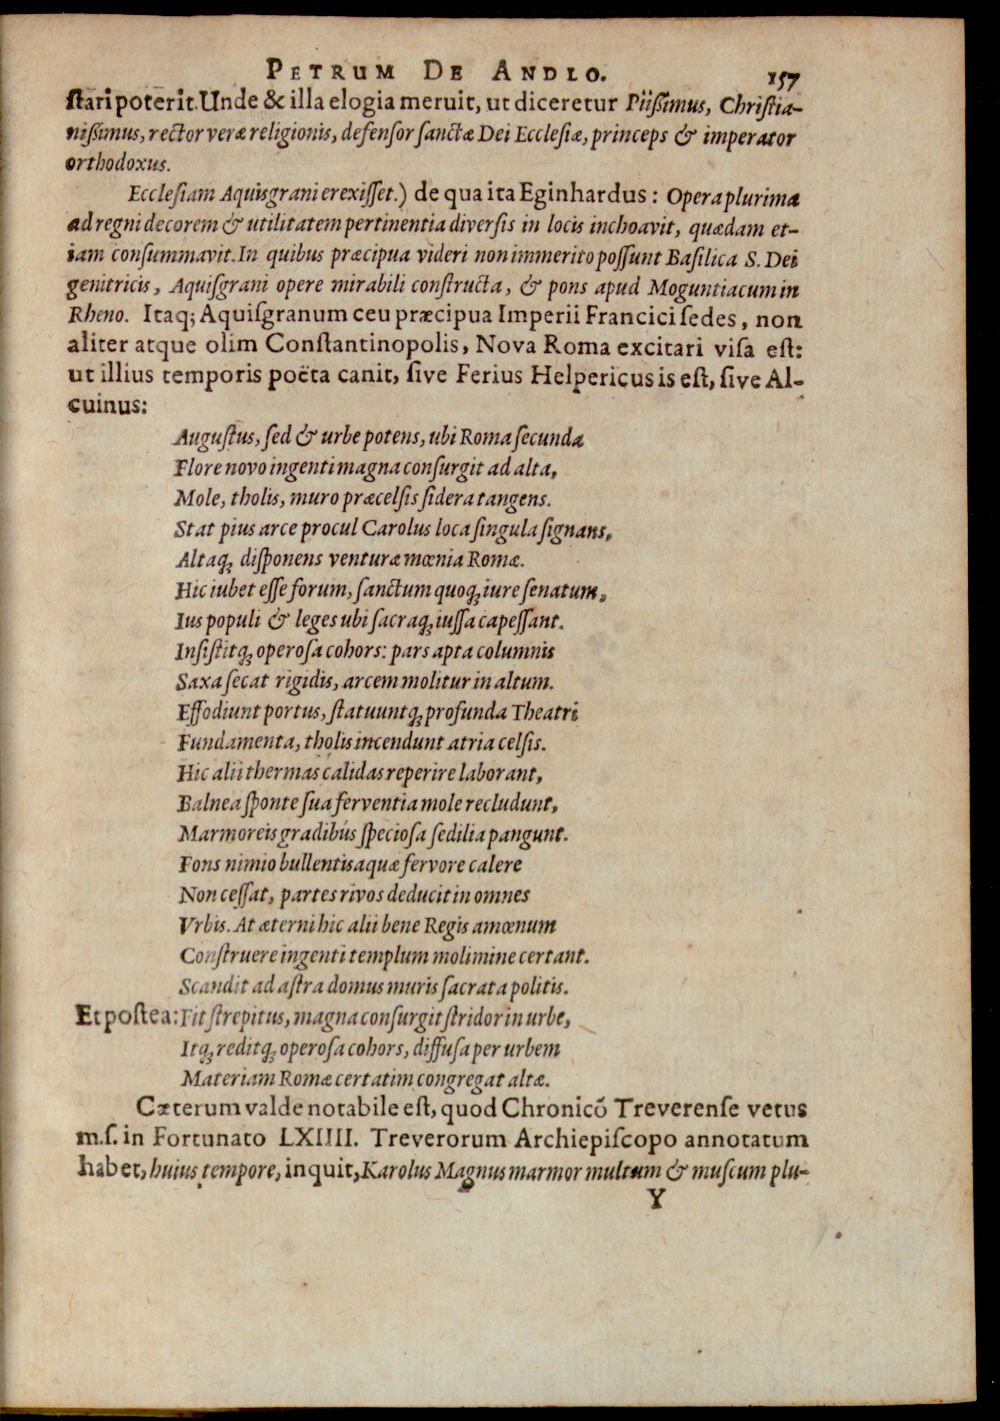 PETRUM DE ANDLO. 157
ſtari poterit. Unde & illa elogia meruit, ut diceretur Piißimus, Chriſtia-
nißimus, rector veræ religionis, defenſor ſanctæ Dei Eccleſiæ, princeps & imperator
orthodoxus.
Eccleſiam Aquiſgrani erexiſſet.) de qua ita Eginhardus: Opera plurima
ad regni decorem & utilitatem pertinentia diverſis in locis inchoavit, quædam et-
iam conſummavit. In quibus præcipua videri non immerito poſſunt Baſilica S. Dei
genitricis, Aquiſgrani opere mirabili conſtructa, & pons apud Moguntiacum in
Rheno. Itaq; Aquiſgranum ceu præcipua Imperii Francici ſedes, non
aliter atque olim Conſtantinopolis, Nova Roma excitari viſa eſt:
ut illius temporis poëta canit, ſive Ferius Helpericus is eſt, ſive Al-
cuinus:
Auguſtus, ſed & urbe potens, ubi Roma ſecunda
Flore novo ingenti magna conſurgit ad alta,
Mole, tholis, muro præcelſis ſidera tangens.
Stat pius arce procul Carolus loca ſingula ſignans,
Altaq; diſponens venturæ mœnia Romæ.
Hic iubet eſſe forum, ſanctum quoq; iure ſenatum,
Ius populi & leges ubi ſacraq; iuſſa capeſſant.
Inſiſtitq; operoſa cohors: pars apta columnis
Saxa ſecat rigidis, arcem molitur in altum.
Effodiunt portus, ſtatuuntq; profunda Theatri
Fundamenta, tholis incendunt atria celſis.
Hic alii thermas calidas reperire laborant,
Balnea ſponte ſua ferventia mole recludunt,
Marmoreis gradibus ſpecioſa ſedilia pangunt.
Fons nimio bullentis aquæ fervore calere
Non ceſſat, partes rivos deducit in omnes
Vrbis. At æterni hic alii bene Regis amœnum
Conſtruere ingenti templum molimine certant.
Scandit ad aſtra domus muris ſacrata politis.
Et poſtea: Fit ſtrepitus, magna conſurgit ſtridor in urbe,
Itq; reditq; operoſa cohors, diffuſa per urbem
Materiam Romæ certatim congregat altæ.
Cæterum valde notabile eſt, quod Chronicõ Treverenſe vetus
m.ſ. in Fortunato LXIIII. Treverorum Archiepiſcopo annotatum
habet, huius tempore, inquit, Karolus Magnus marmor multum & muſcum plu-
Y